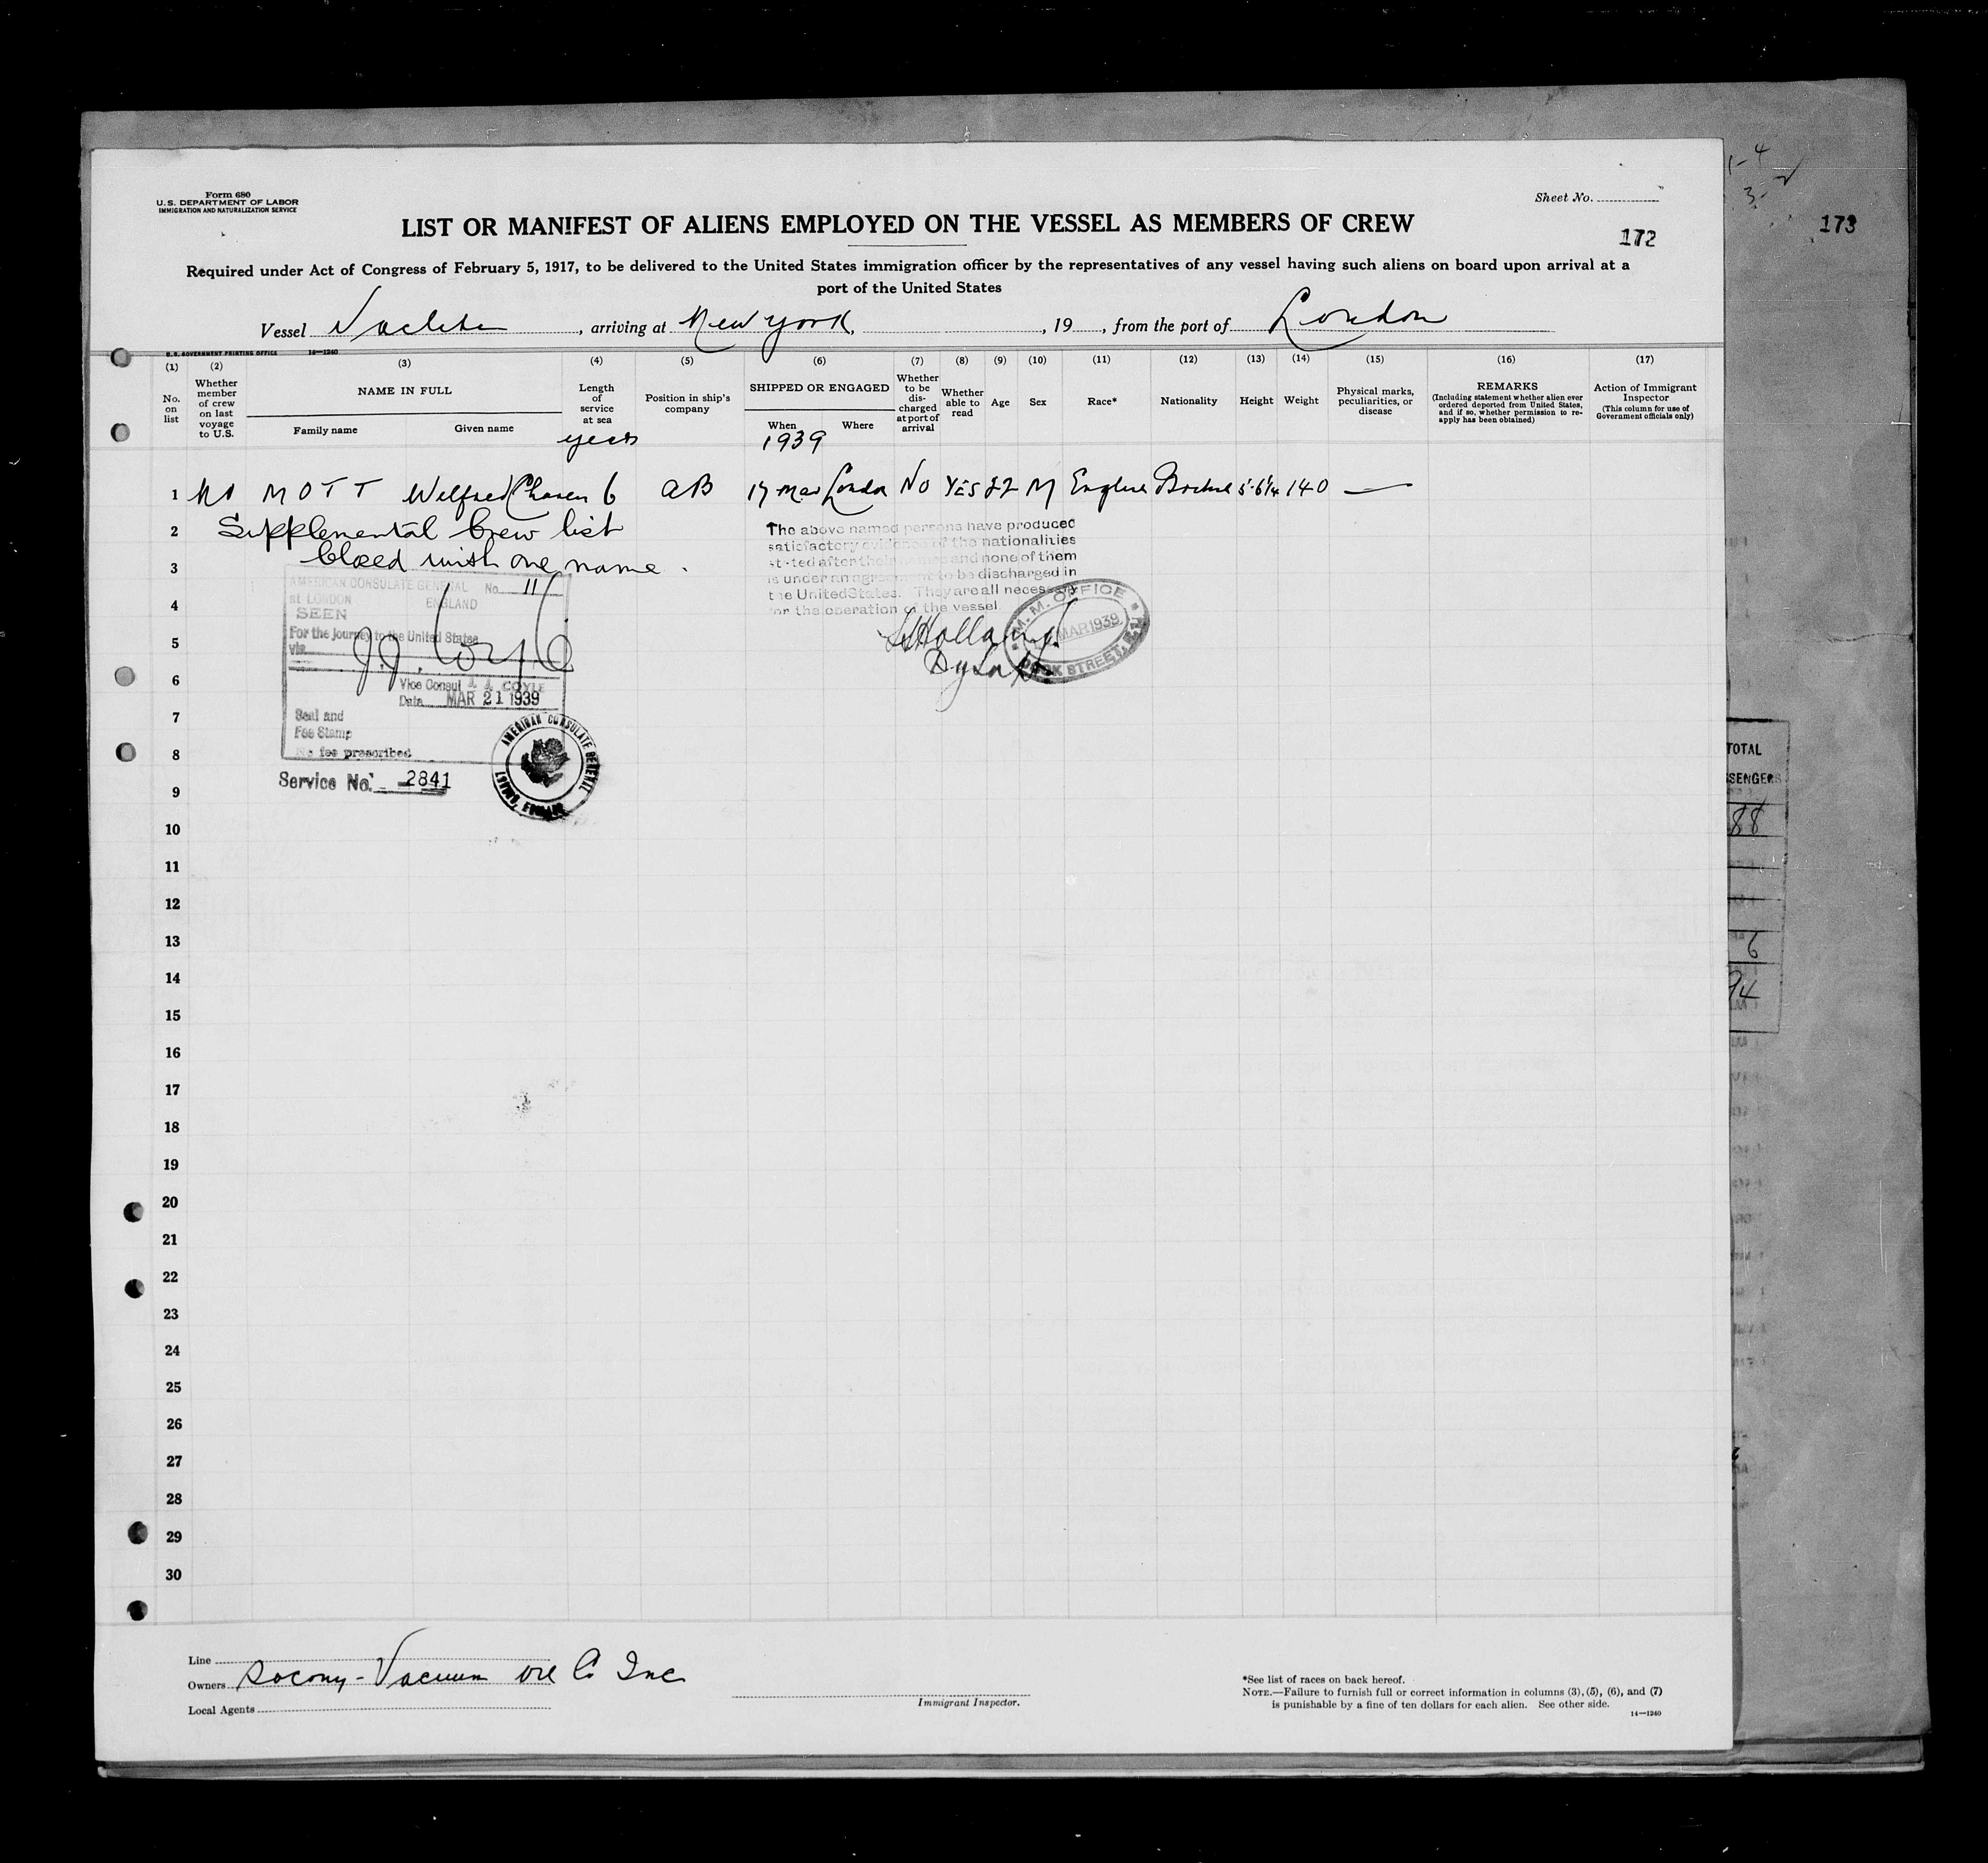 1-4
3-
173
Form 680
U.S. DEPARTMENT OF LABOR
IMMIGRATION AND NATURALIZATION SERVICE
Sheet No.
LIST OR MANIFEST OF ALIENS EMPLOYED ON THE VESSEL AS MEMBERS OF CREW
172
Required under Act of Congress of February 5, 1917, to be delivered to the United States immigration officer by the representatives of any vessel having such aliens on board upon arrival at a
port of the United States
Vessel , arriving at New York, , 19 , from the port of London
U.S. GOVERNMENT PRINTING OFFICE 14—1240
(1) (2) (3) (4) (5) (6) (7) (8) (9) (10) (11) (12) (13) (14) (15) (16) (17)
No. on list
Whether member of crew on last voyage to U.S.
NAME IN FULL
Family name Given name
Length of service at sea
years
Position in ship's company
SHIPPED OR ENGAGED
When Where
1939
Whether to be discharged at port of arrival
Whether able to read
Age
Sex
Race*
Nationality
Height
Weight
Physical marks, peculiarities, or disease
REMARKS
(Including statement whether alien ever ordered deported from United States, and if so, whether permission to reapply has been obtained)
Action of Immigrant Inspector
(This column for use of Government officials only)
1 No MOTT Wilfred 6 AB 17 Mar London No YES 22 M 5'6¼ 140 —
2 Supplemental Crew list
3 closed with one name.
The above named persons have produced
satisfactory evidence of the nationalities
stated after their names and none of them
is under an agreement to be discharged in
the United States. They are all necessary
for the operation of the vessel
Holland
M.M. OFFICE
MAR 1939
DOCK STREET, E.1
AMERICAN CONSULATE GENERAL No. 11
at LONDON ENGLAND
SEEN
For the journey to the United States
via
J.J. Coyle
Vice Consul J. J. COYLE
Date MAR 21 1939
Seal and
Fee Stamp
No fee prescribed
Service No. 2841
AMERICAN CONSULATE GENERAL
LONDON, ENGLAND
4
5
6
7
8
9
10
11
12
13
14
15
16
17
18
19
20
21
22
23
24
25
26
27
28
29
30
TOTAL
SSENGERS
88
6
94
Line
Owners Socony-Vacuum Oil Co Inc
Local Agents
Immigrant Inspector.
*See list of races on back hereof.
NOTE.—Failure to furnish full or correct information in columns (3), (5), (6), and (7)
is punishable by a fine of ten dollars for each alien. See other side.
14—1240